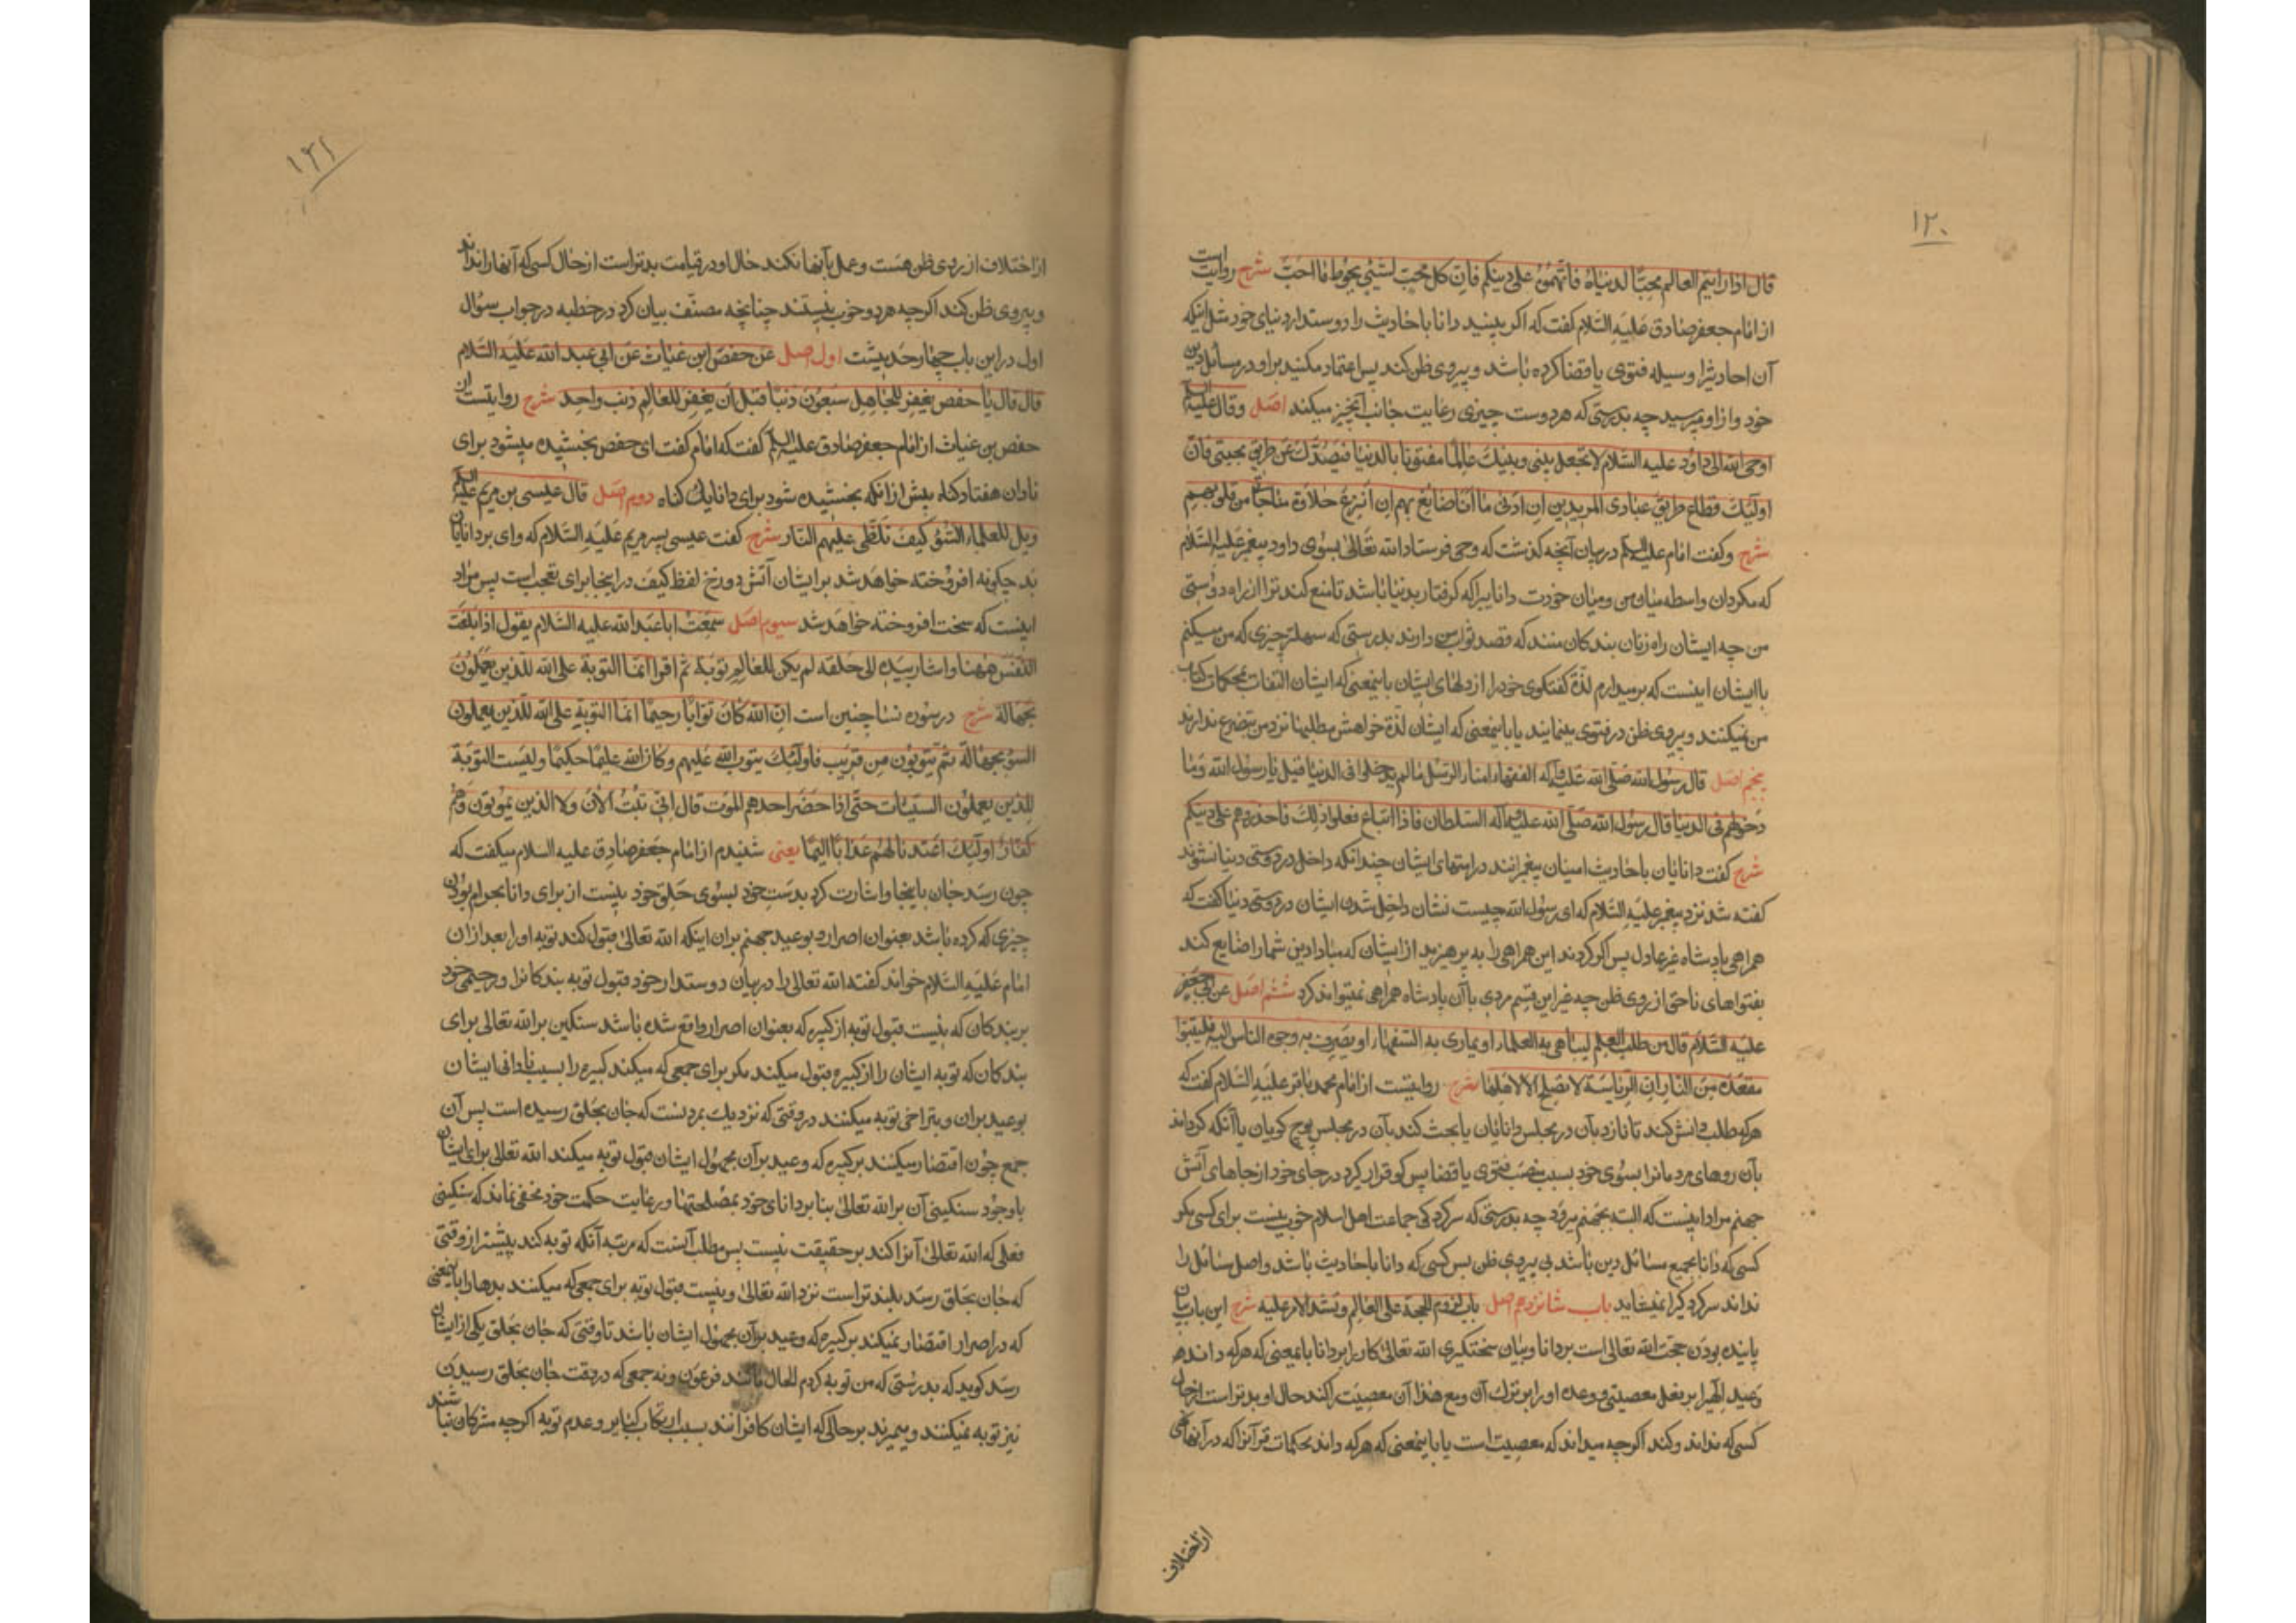 ۱۲۰
قال اذا رایتم العالم محبّا لدنیاه فاتّهموه علی دینکم فانّ کل محبّ لشیئ یحوط ما احبّ شرح روایت است
از امام جعفر صادق علیه السّلام گفت که اگر بینید دانا باحادیث را دوستدار دنیای خود مثل اینکه
آن احادیثرا وسیله فتوی یا قضا کرده باشد و پیروی ظن کند پس اعتماد مکنید بر او در مسائل دین
خود و از او مپرسید چه بدرستی که هر دوست چیزی رعایت جانب آنچیز میکند اصل و قال علیه السلم
اوحی الله الی داود علیه السّلام لا تجعل بینی و بینک عالما مفتونا بالدنیا فیصدّک عن طریق محبتی فانّ
اولئک قطاع طریق عبادی المریدین ان ادنی ما انا صانع بهم ان انزع حلاوة مناجاتی من قلوبهم
شرح و گفت امام علیه السلم در بیان آنچه گذشت که وحی فرستاد الله تعالی بسوی داود پیغمبر علیه السّلام
که مگردان واسطه میان من و میان خودت دانایی را که گرفتار بدنیا باشد تا منع کند ترا از راه دوستی
من چه ایشان راه زنان بندکان منند که قصد ثواب من دارند بدرستی که سهلتر چیزی که من میکنم
با ایشان اینست که برمیدارم لذّة گفتگوی خود را از دلهای ایشان باینمعنی که ایشان التفات بمحکمات کتاب
من نمیکنند و پیروی ظن در فتوی مینمایند یا باینمعنی که ایشان لذّة خواهش مطلبها نزد من بتضرع ندارند
پنجم اصل قال رسول الله صلّی الله علیه و آله الفقهاء امناء الرسل ما لم یدخلوا فی الدنیا قیل یا رسول الله و ما
دخولهم فی الدنیا قال رسول الله صلّی الله علیه و آله اتباع السلطان فاذا فعلوا ذلک فاحذروهم علی دینکم
شرح گفت دانایان باحادیث امینان پیغمبرانند در امتهای ایشان چندانکه داخل در دوستی دنیا نشوند
گفته شد نزد پیغمبر علیه السّلام که ای رسول الله چیست نشان داخل شدن ایشان در دوستی دنیا گفت که
همراهی پادشاه غیر عادل پس اگر کردند این همراهی را به پرهیزید از ایشان که مبادا دین شما را ضایع کند
بفتواهای ناحق از روی ظن چه غیر این قسم مردی با آن پادشاه همراهی نمیتواند کرد ششم اصل عن ابی جعفر
علیه السّلام قال من طلب العلم لیباهی به العلماء او یماری به السّفهاء او یصرف به وجوه الناس الیه فلیتبوّا
مقعده من النار ان الرّیاسة لا تصلح الا لاهلها شرح روایتست از امام محمد باقر علیه السّلام گفت که
هر که طلب دانش کند تا نازد بآن در مجلس دانایان یا بحث کند بآن در مجلس پوچ گویان یا آنکه گرداند
بآن روهای مردمانرا بسوی خود بسبب منصب فتوی یا قضا پس گو قرار گیرد در جای خود از جاهای آتش
جهنم مراد اینست که البته بجهنم میرود چه بدرستی که سرکردگی جماعت اهل اسلام خوب نیست برای کسی مگر
کسی که دانا بجمیع مسائل دین باشد بی پیروی ظن پس کسی که دانا باحادیث باشد و اصل مسائل را
نداند سرکردگیرا نمیشاید باب شانزدهم اصل باب لزوم الحجة علی العالم و تشدید الامر علیه شرح این باب بیان
پاینده بودن حجت الله تعالی است بر دانا و بیان سختگیری الله تعالی کار را بر دانا باینمعنی که هر که داند
وعید الهی را بر فعل معصیتی و وعده او را بر ترک آن و مع هذا آن معصیت را کند حال او بدتر است از حال
کسی که نداند و کند اگر چه میداند که معصیت است یا باینمعنی که هر که داند محکمات قرآنرا که در آنها نهی
از اختلاف
۱۲۱
از اختلاف از روی ظن هست و عمل بآنها نکند حال او در قیامت بدتر است از حال کسی که آنها را نداند
و پیروی ظن کند اگر چه هر دو خوب نیستند چنانچه مصنّف بیان کرد در خطبه در جواب سؤال
اول در این باب چهار حدیثست اول اصل عن حفص ابن غیاث عن ابی عبد الله علیه السّلام
قال قال یا حفص یغفر للجاهل سبعون ذنبا قبل ان یغفر للعالم ذنب واحد شرح روایتست از
حفص بن غیاث از امام جعفر صادق علیه السلم گفت که امام گفت ای حفص بخشیده میشود برای
نادان هفتاد گناه پیش از انکه بخشیده شود برای دانا یک گناه دوم اصل قال عیسی بن مریم علیه السلم
ویل للعلماء السّوء کیف تلظّی علیهم النّار شرح گفت عیسی پسر مریم علیه السّلام که وای بر دانایان
بد چگونه افروخته خواهد شد بر ایشان آتش دوزخ لفظ کیف در اینجا برای تعجب است پس مراد
اینست که سخت افروخته خواهد شد سیوم اصل سمعت ابا عبد الله علیه السّلام یقول اذا بلغت
النّفس ههنا و اشار بیده الی حلقه لم یکن للعالم توبة ثم اقرا انما التوبة علی الله للذین یعملون
بجهالة شرح در سوره نسا چنین است انّ الله کان توّابا رحیما انما التوبة علی الله للّذین یعملون
السوء بجهالة ثم یتوبون من قریب فاولئک یتوب الله علیهم و کان الله علیما حکیما و لیست التوبة
للذین یعملون السیئات حتّی اذا حضر احدهم الموت قال انّی تبت الآن و لا الذین یموتون و هم
کفّار اولئک اعتدنا لهم عذابا الیما یعنی شنیدم از امام جعفر صادق علیه السلام میگفت که
چون رسد جان باینجا و اشارت کرد بدست خود بسوی حلق خود نیست از برای دانا بحرام بودن
چیزی که کرده باشد بعنوان اصرار و بوعید جهنم بران اینکه الله تعالی قبول کند توبه او را بعد ازان
امام علیه السّلام خواند گفته الله تعالی را در بیان دوستدار خود قبول توبه بندکانرا و رحیمی خود
بر بندکان که نیست قبول توبه از کبیره که بعنوان اصرار واقع شده باشد سنگین بر الله تعالی برای
بندکان که توبه ایشان را از کبیره قبول میکند مگر برای جمعی که میکند کبیره را بسبب نادانی ایشان
بوعید بران و بتراخی توبه میکنند در وقتی که نزدیک بمردنست که جان بحلق رسیده است پس آن
جمع چون اقتصار میکنند بر کبیره که وعید بر آن مجهول ایشان قبول توبه میکند الله تعالی برای ایشان
با وجود سنگینی آن بر الله تعالی بنا بر دانای خود بمصلحتها و رعایت حکمت خود مخفی نماند که سنگینی
فعلی که الله تعالی آنرا کند بر حقیقت نیست پس مطلب آنست که مرتبه آنکه توبه کند پیشتر از وقتی
که جان بحلق رسد بلندتر است نزد الله تعالی و نیست قبول توبه برای جمعی که میکنند بدها را باینمعنی
که در اصرار اقتصار نمیکند بر کبیره که وعید بر آن مجهول ایشان باشد تا وقتی که جان بحلق یکی از ایشان
رسد گوید که بدرستی که من توبه کردم الحال مانند فرعون و نه جمعی که در وقت جان بحلق رسیدن
نیز توبه نمیکنند و بمیرند بر حالی که ایشان کافرانند بسبب ارتکاب کبایر و عدم توبه اگر چه مشرکان نباشند